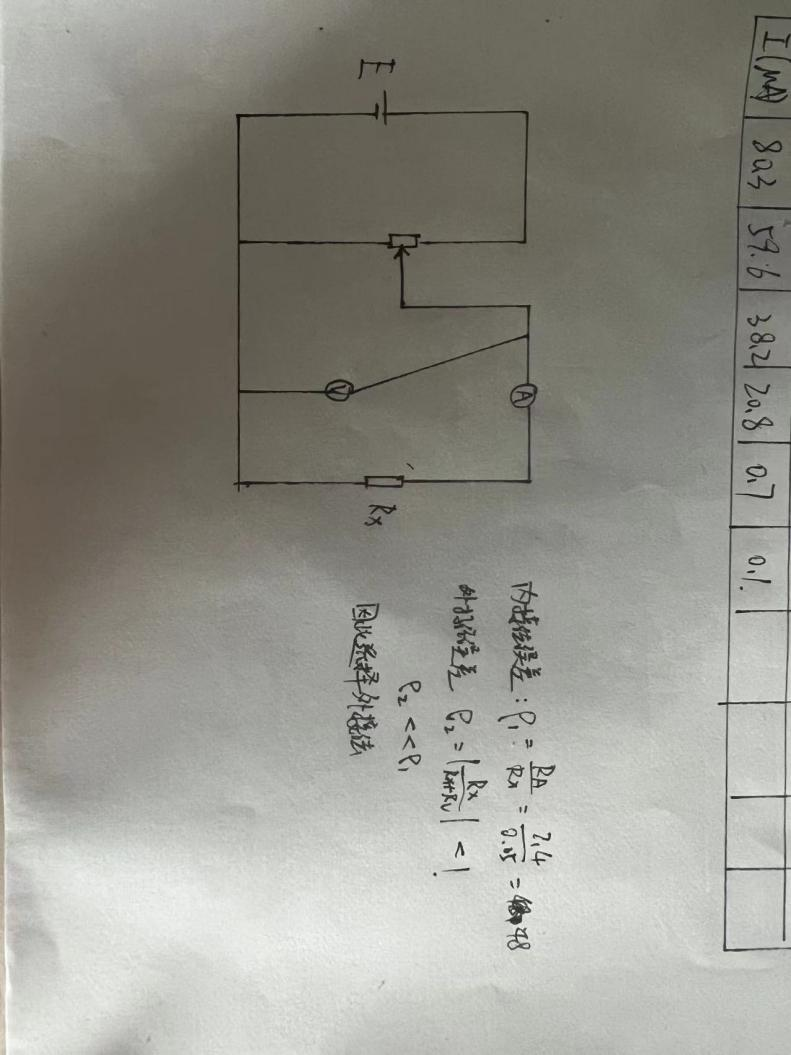 I(μA) 80.3 59.6 38.2 20.8 0.7 0.1
E
V
A
Rx
内接法误差：ρ₁ = RA/Rx = 2.4/0.05 = 48
外接法误差 ρ₂ = |Rx/(Rx+Rv)| < 1
ρ₂ << ρ₁
因此选择外接法